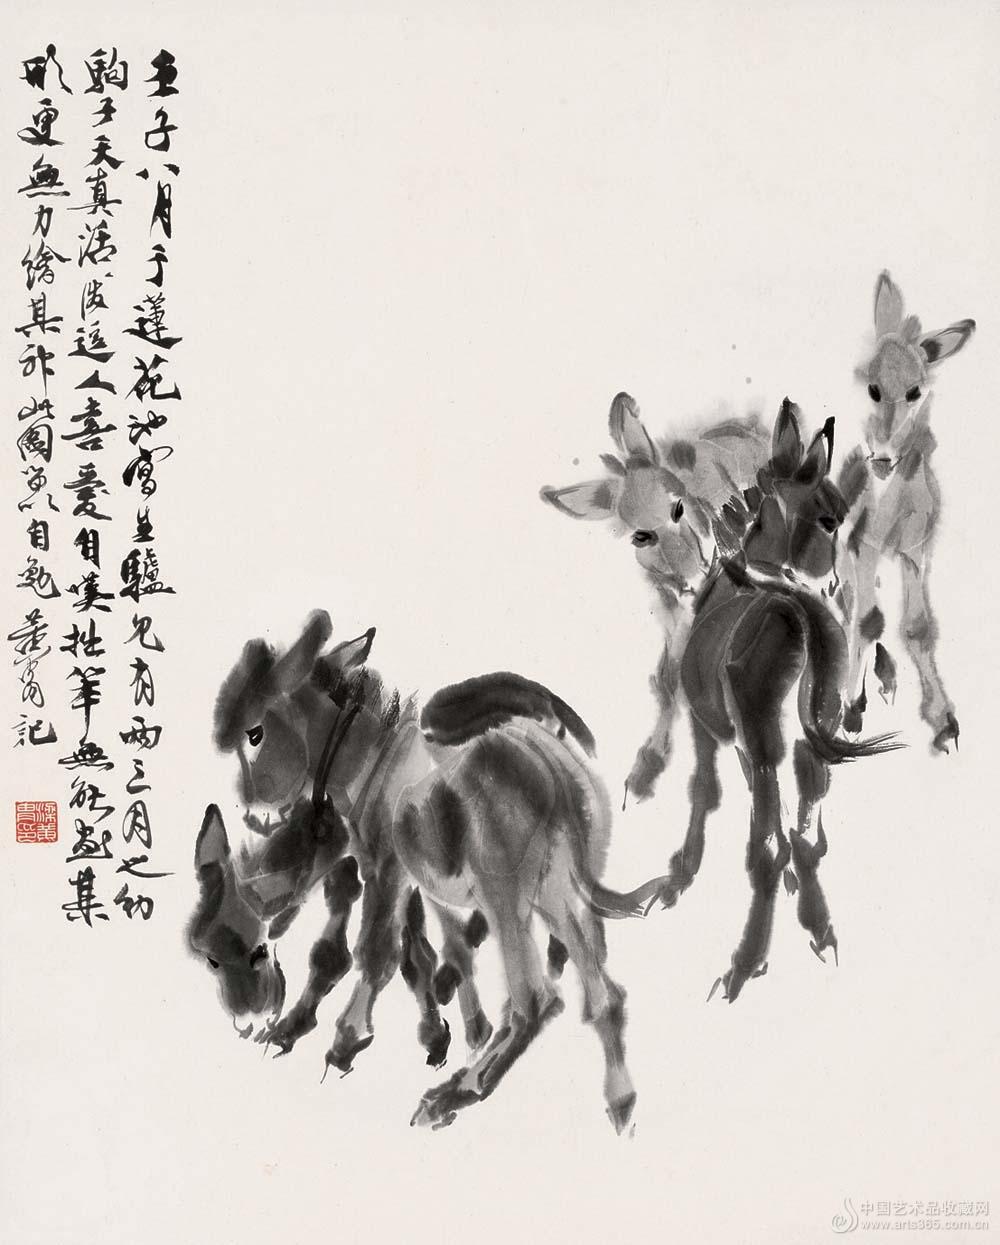 壬子八月于蓮花池寫生驢兒有兩三月之幼
駒子天真活潑逗人喜愛自嘆拙筆無能畫其
形更無力繪其神此圖以自勉黃胄記
梁黃胄印
中国艺术品收藏网
www.arts365.com.cn